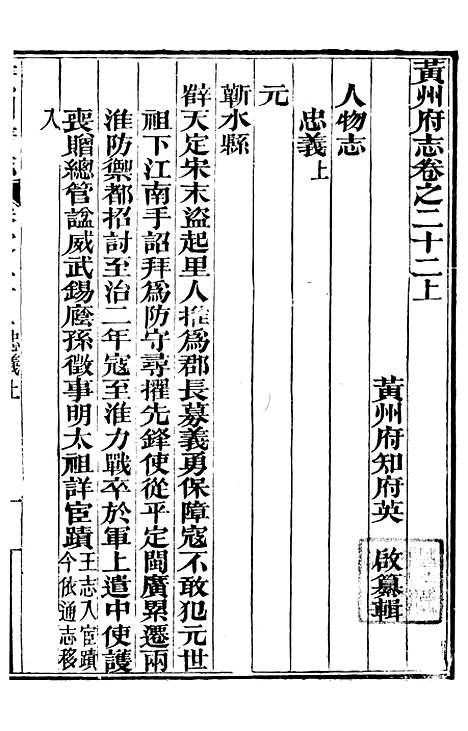 黃州府志卷之二十二上
黃州府知府英　啟纂輯
人物志
忠義上
元
蘄水縣
薜天定宋末盜起里人推為郡長募義勇保障寇不敢犯元世
祖下江南手詔拜為防守尋擢先鋒使從平定閩廣累遷兩
淮防禦都招討至治二年寇至淮力戰卒於軍上遣中使護
喪贈總管諡威武錫廕孫徵事明太祖詳宦蹟王志入宦蹟今依通志移
入
忠義上